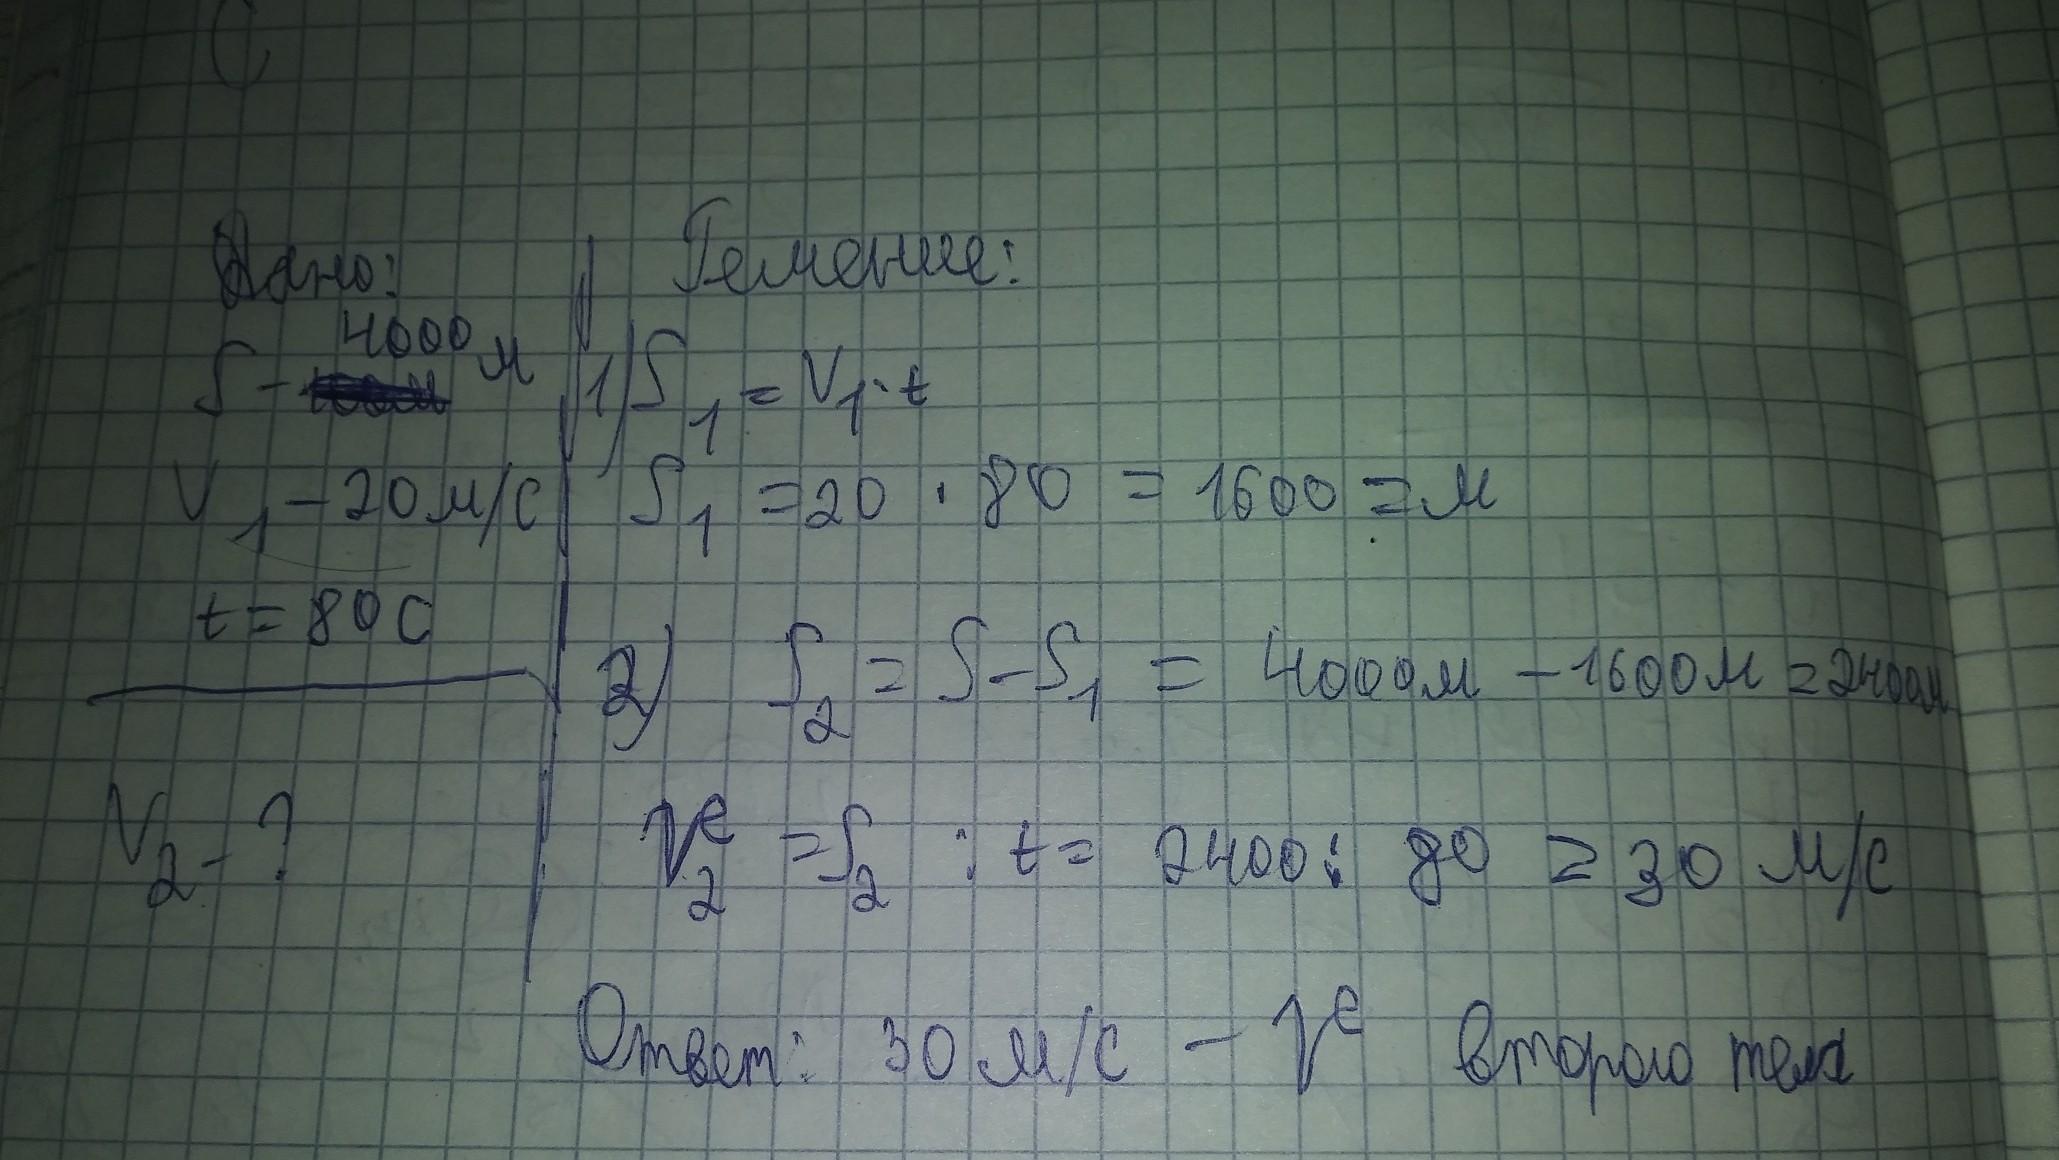 С
Дано:
S - 4000 м
V₁ - 20 м/с
t = 80 с
V₂ - ?
Решение:
1) S₁ = V₁ · t
S₁ = 20 · 80 = 1600 = м
2) S₂ = S - S₁ = 4000м - 1600м = 2400м
V₂ = S₂ : t = 2400 : 80 = 30 м/с
Ответ: 30 м/с - V второго тела